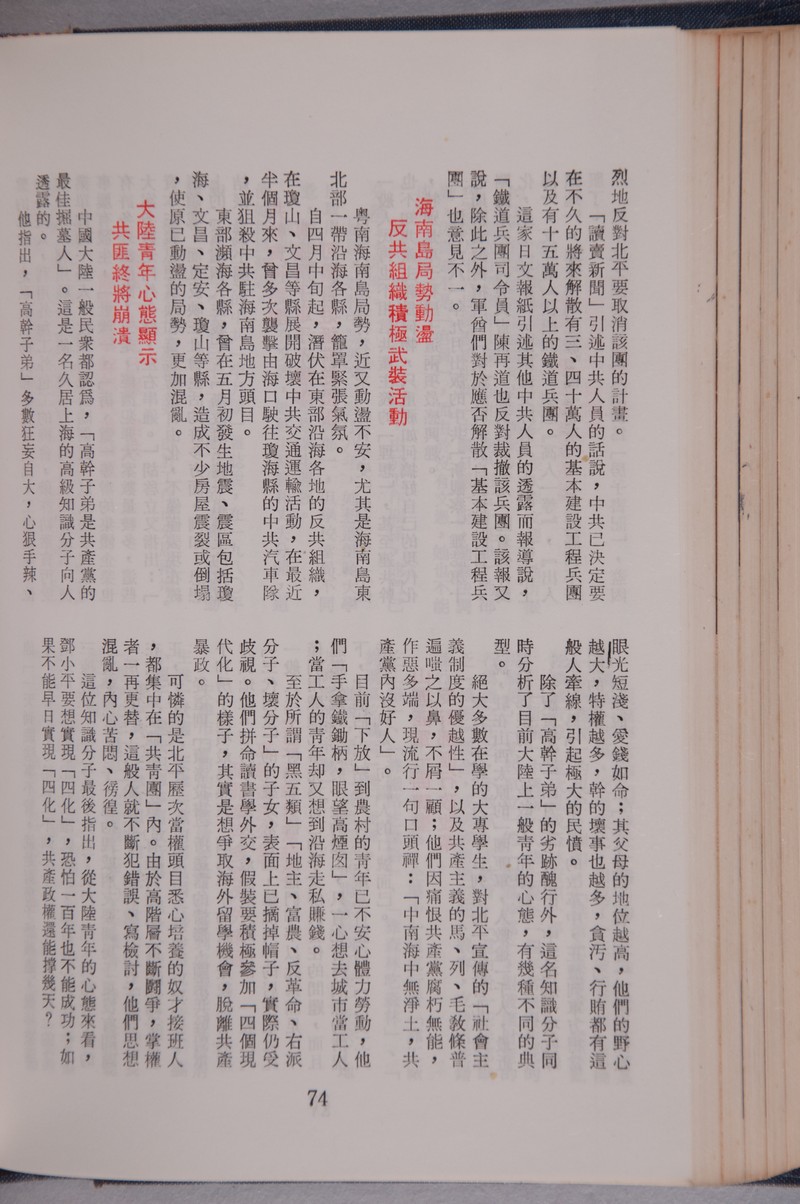 烈地反對北平要取消該團的計畫。
「讀賣新聞」引述中共人員的話說，中共已決定要
在不久的將來解散有三、四十萬人的基本建設工程兵團
以及有十五萬人以上的鐵道兵團。
這家日文報紙引述其他中共人員的透露而報導說，
「鐵道兵團司令員」陳再道也反對裁撤該兵團。該報又
說，除此之外，軍酋們對於應否解散「基本建設工程兵
團」也意見不一。
海南島局勢動盪
反共組織積極武裝活動
粵南海南島局勢，近又動盪不安，尤其是海南島東
北部一帶沿海各縣，籠罩緊張氣氛。
自四月中旬起，潛伏在東部沿海各地的反共組織，
在瓊山、文昌等縣展開破壞中共交通運輸活動，在最近
半個月來，曾多次襲擊由海口駛往瓊海縣的中共汽車隊
，並狙殺中共駐海南島地方頭目。
東部瀕海各縣，曾在五月初發生地震、震區包括瓊
海、文昌、定安、瓊山等縣，造成不少房屋震裂或倒塌
，使原已動盪的局勢，更加混亂。
大陸青年心態顯示
共匪終將崩潰
中國大陸一般民衆都認爲，「高幹子弟是共產黨的
最佳掘墓人」。這是一名久居上海的高級知識分子向人
透露的。
他指出，「高幹子弟」多數狂妄自大，心狠手辣、
眼光短淺、愛錢如命；其父母的地位越高，他們的野心
越大，特權越多，幹的壞事也越多，貪汚、行賄都有這
般人牽線，引起極大的民憤。
除了「高幹子弟」的劣跡醜行外，這名知識分子同
時分析了目前大陸上一般青年的心態，有幾種不同的典
型。
絕大多數在學的大專學生，對北平宣傳的「社會主
義制度的優越性」，以及共產主義的馬、列、毛教條普
遍嗤之以鼻，不屑一顧；他們因痛恨共產黨腐朽無能，
作惡多端，現流行一句口頭禪：「中南海中無淨土，共
產黨內沒好人」。
目前「下放」到農村的青年已不安心體力勞動，他
們「手拿鐵鋤柄，眼望高煙囪」，一心想去城市當工人
；當工人的青年却又想到沿海走私賺錢。
至於所謂「黑五類」「地主、富農、反革命、右派
分子、壞分子」的子女，表面上已摘掉帽子，實際仍受
歧視。他們拼命讀書學外交，假裝要積極參加「四個現
代化」的樣子，其實是想爭取海外留學機會，脫離共產
暴政。
可憐的是北平歷次當權頭目悉心培養的奴才接班人
，都集中在「共靑團」內。由於高階層不斷鬪爭，掌權
者一再更替，這般人就不斷犯錯誤、寫檢討，他們思想
混亂，內心苦悶、徬徨。
這位知識分子最後指出，從大陸靑年的心態來看，
鄧小平要想實現「四化」，恐怕一百年也不能成功；如
果不能早日實現「四化」，共產政權還能撐幾天？
74